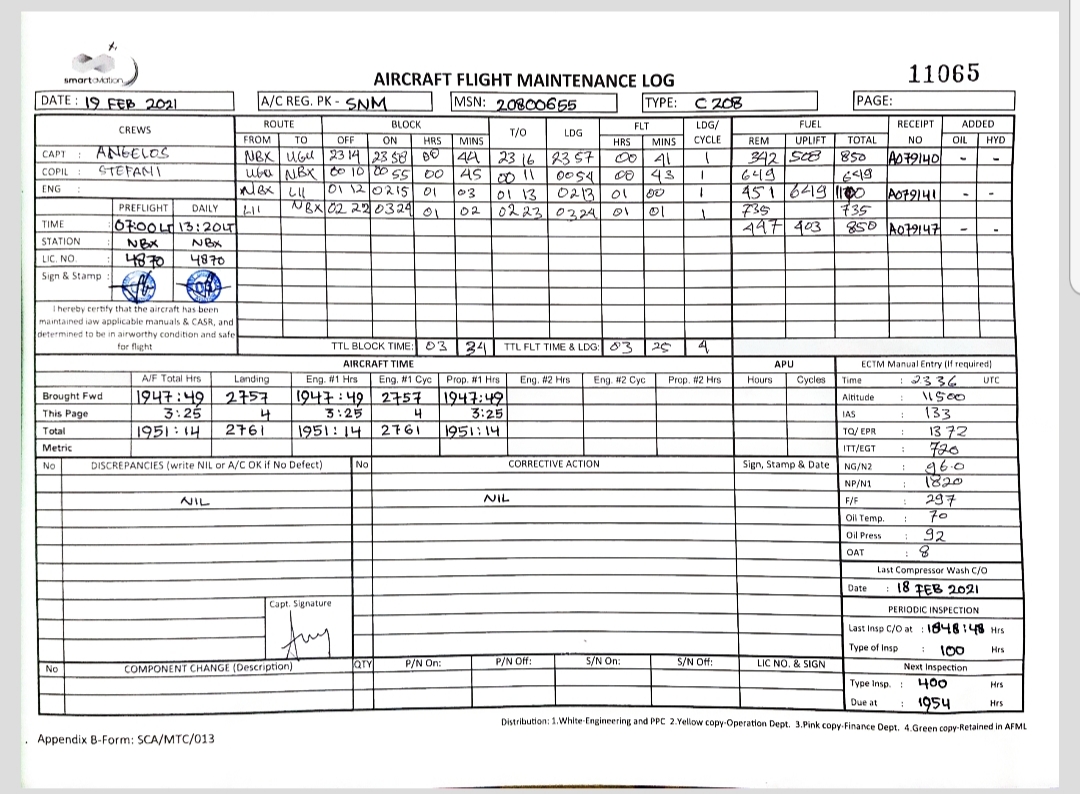 smartaviation
AIRCRAFT FLIGHT MAINTENANCE LOG
11065
DATE : 19 FEB 2021
A/C REG. PK - SNM
MSN: 20800655
TYPE: C 208
PAGE:
CREWS ROUTE BLOCK T/O LDG FLT LDG/ CYCLE FUEL RECEIPT NO ADDED
FROM TO OFF ON HRS MINS HRS MINS REM UPLIFT TOTAL OIL HYD
CAPT : ANGELOS NBX UGU 2314 2358 00 44 23 16 2357 00 41 1 342 508 850 A079140 - -
COPIL : STEFANI UGU NBX 00 10 00 55 00 45 00 11 0054 00 43 1 649 649
ENG : NBX LII 01 12 0215 01 03 01 13 0213 01 00 1 451 649 1100 A079141
LII NBX 02 22 0324 01 02 02 23 0324 01 01 1 735 735
447 403 850 A079147 - -
PREFLIGHT DAILY
TIME : 07:00 LT 13:20LT
STATION : NBX NBX
LIC. NO. : 4870 4870
Sign & Stamp :
I hereby certify that the aircraft has been
maintained iaw applicable manuals & CASR, and
determined to be in airworthy condition and safe
for flight
TTL BLOCK TIME: 03 34 TTL FLT TIME & LDG: 03 25 4
AIRCRAFT TIME APU ECTM Manual Entry (If required)
A/F Total Hrs Landing Eng. #1 Hrs Eng. #1 Cyc Prop. #1 Hrs Eng. #2 Hrs Eng. #2 Cyc Prop. #2 Hrs Hours Cycles
Brought Fwd 1947:49 2757 1947:49 2757 1947:49
This Page 3:25 4 3:25 4 3:25
Total 1951:14 2761 1951:14 2761 1951:14
Metric
Time : 2336 UTC
Altitude : 11500
IAS : 133
TQ/ EPR : 1372
ITT/EGT : 720
NG/N2 : 96.0
NP/N1 : 1820
F/F : 297
Oil Temp. : 70
Oil Press : 92
OAT : 8
Last Compressor Wash C/O
Date : 18 FEB 2021
PERIODIC INSPECTION
Last Insp C/O at : 1848:48 Hrs
Type of Insp : 100 Hrs
Next Inspection
Type Insp. : 400 Hrs
Due at : 1954 Hrs
No DISCREPANCIES (write NIL or A/C OK if No Defect) No CORRECTIVE ACTION Sign, Stamp & Date
NIL NIL
Capt. Signature
No COMPONENT CHANGE (Description) QTY P/N On: P/N Off: S/N On: S/N Off: LIC NO. & SIGN
Distribution: 1.White-Engineering and PPC 2.Yellow copy-Operation Dept. 3.Pink copy-Finance Dept. 4.Green copy-Retained in AFML
Appendix B-Form: SCA/MTC/013